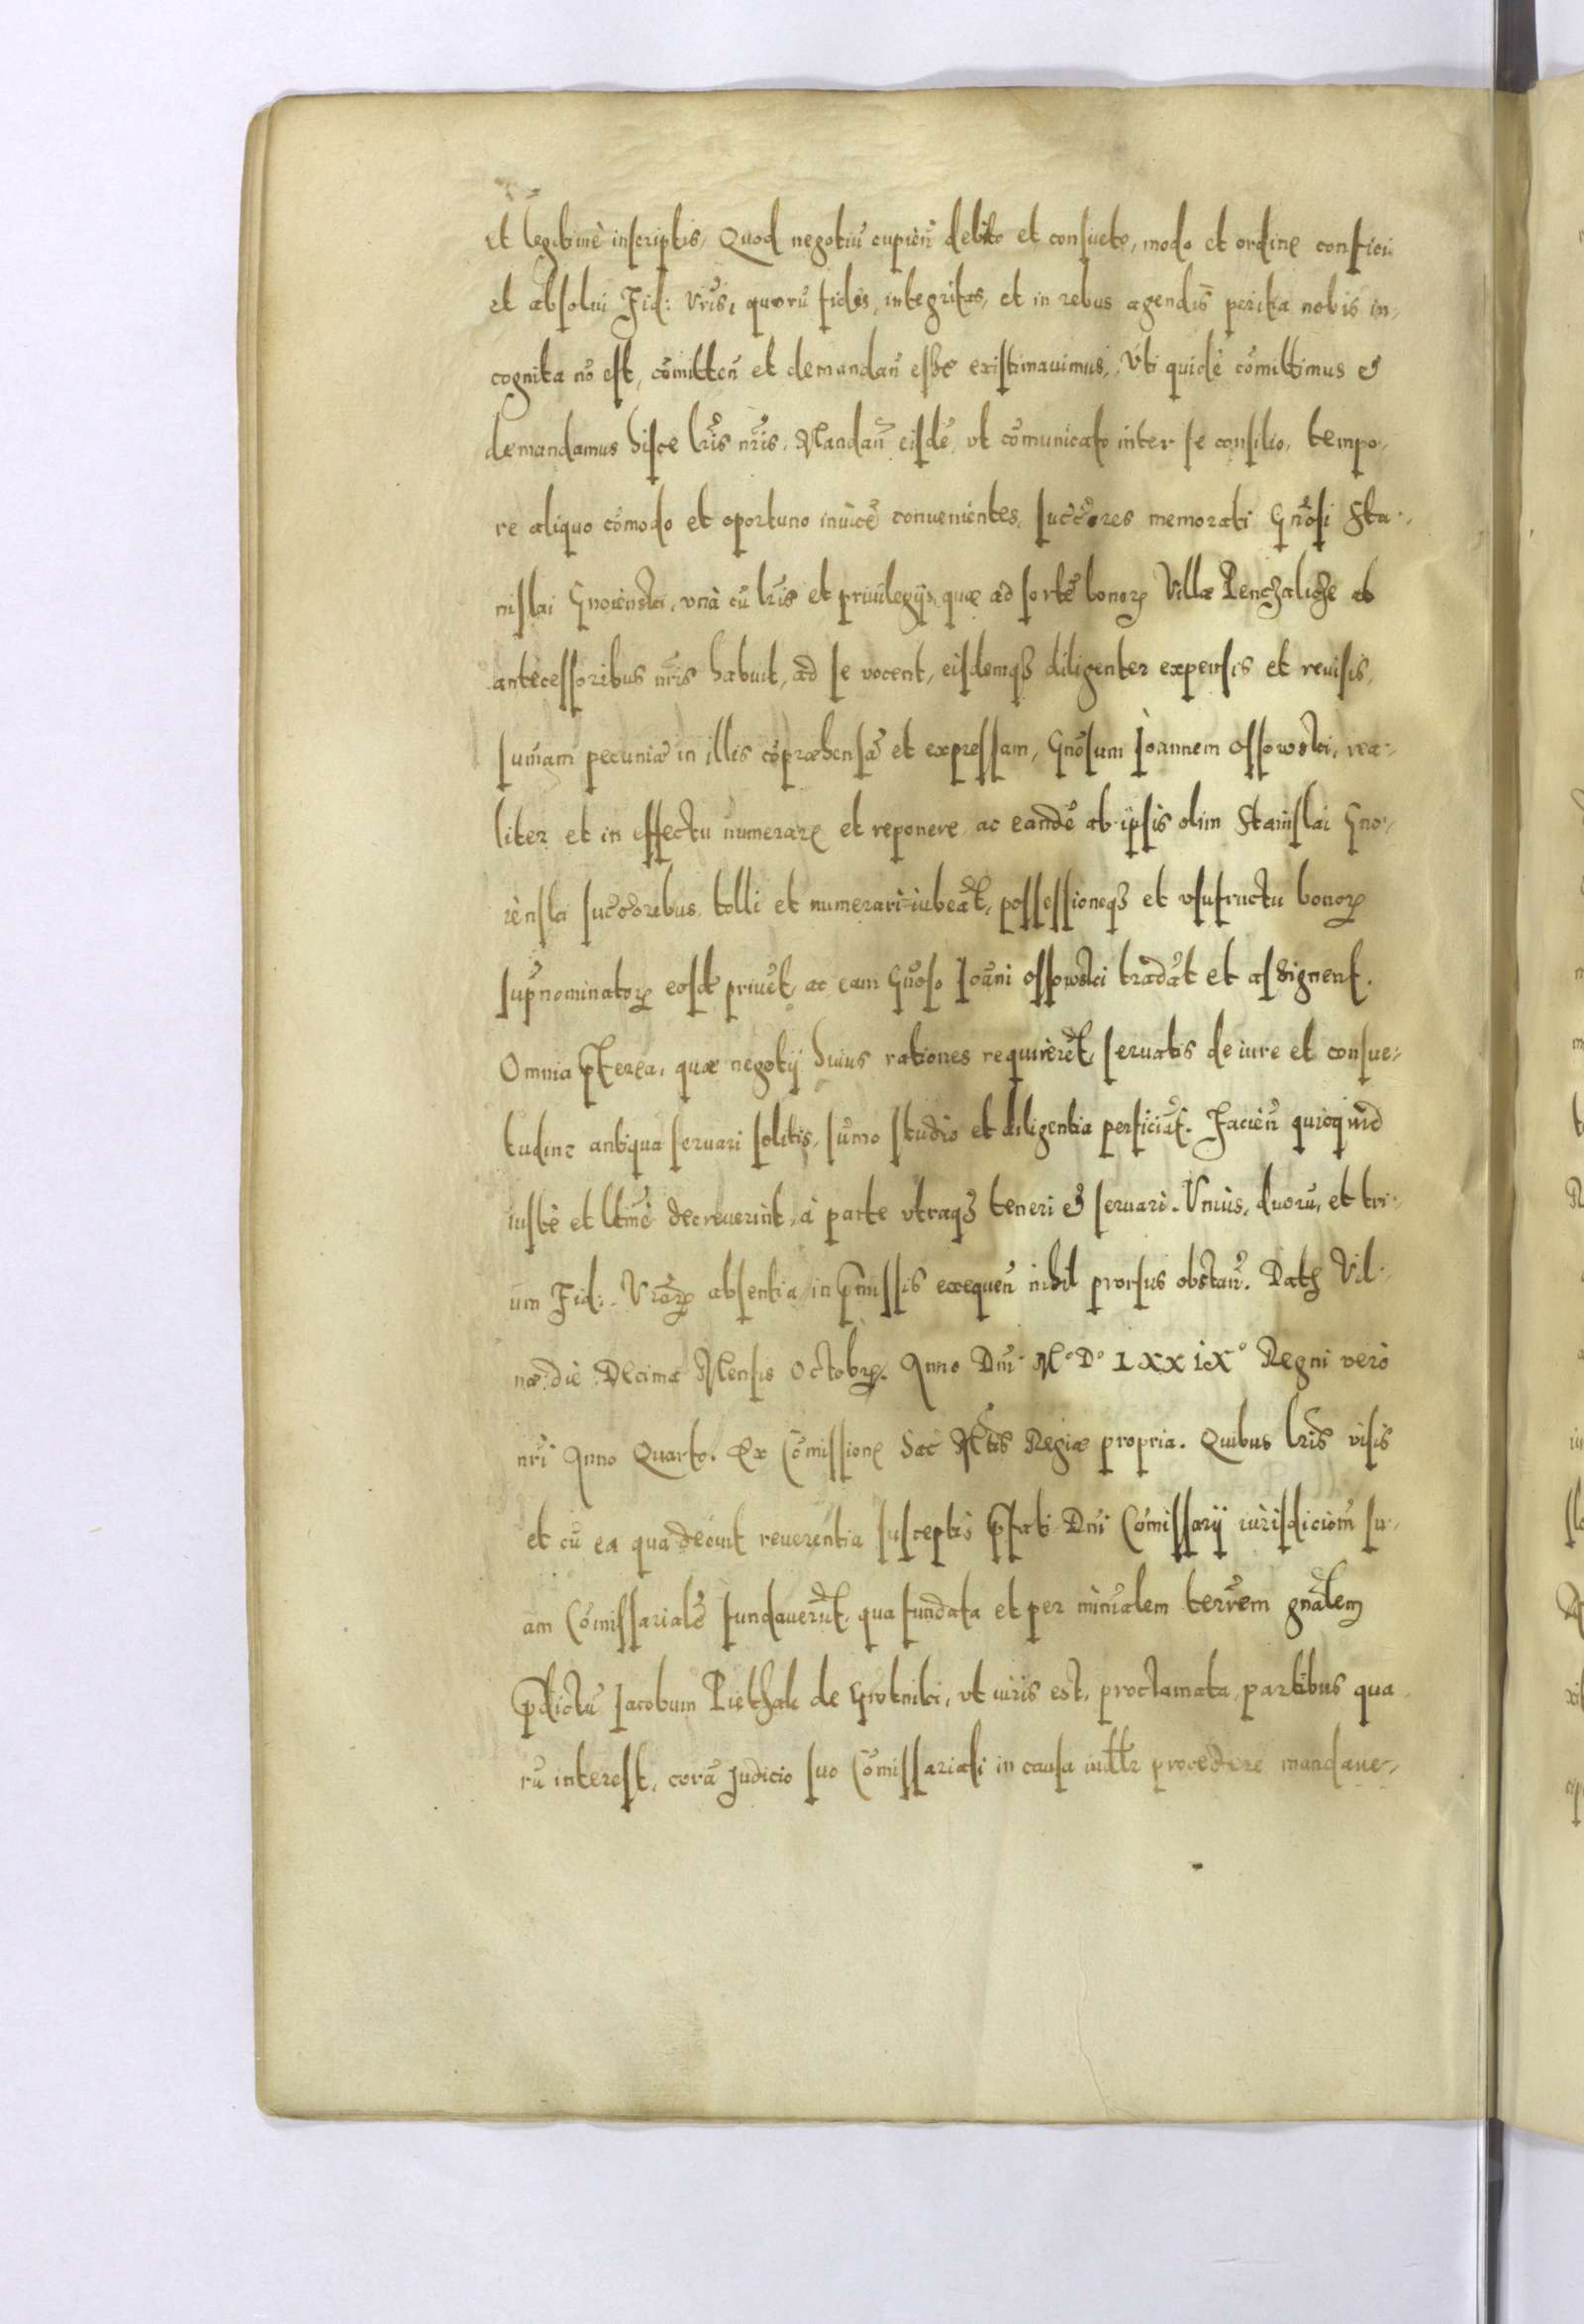 et legitimè inscriptis, Quod negotiũ cupieñ debito et consueto, modo et ordine confici
et absolui Fid: Vr̃is, quorũ fides, integritas, et in rebus agendis perita nobis in,
cognita nõ est, cõmitteñ et demandañ esse existimauimus, Vti quidẽ cõmittimus et
demandamus hisce lr̃is nr̃is. Mandañ eisdẽ, vt cõmunicato inter se consilio, tempo,
re aliquo cõmodo et oportuno inuicẽ conuenientes, succ̃ores memorati Gñosi Sta,
nislai Gnoieñski, vnà cũ lr̃is et priuilegijs, quæ ad sortẽ bonoꝝ Villæ Penczaliche ab
antecessoribus nr̃is habuit, ad se vocent, eisdemqꝫ diligenter expensis et reuisis,
sum̃am pecuniæ in illis cõpræhensã et expressam, Gñosum Joannem Ossowski, rea,
liter et in effectu numerare et reponere, ac eandẽ ab ipsis olim Stanislai Gno,
ieñski succ̃oribus tolli et numerari iubeãt, possessioneqꝫ et vsufructu bonoꝝ
sup̃nominatoꝝ eosdẽ priuẽt, ac eam Gñoso Ioãni Ossowski tradãt et assignent.
Omnia p̃terea, quæ negotij huius rationes requirerẽt, seruatis de iure et consue,
tudine antiqua seruari solitis, sum̃o studio et diligentia perficiãt. Facieñ quicquid
iustè et ltimè decreuerint, à parte vtraqꝫ teneri et seruari. Vnius, duorũ, et tri,
um Fid: Vr̃aꝝ absentia in p̃missis exequeñ nihil prorsus obstañ. Datꝫ Vil,
næ die Decima Mensis Octobrꝭ. Anno Dñi M° D° LXXIX° Regni verò
nr̃i Anno Quarto. Ex Cõmissione Sac̃ Mt̃is Regiæ propria. Quibus lr̃is visis
et cũ ea qua decuit reuerentia susceptis p̃fati Dñi Cõmissarij iurisdiciom̃ su,
am Cõmissarialẽ fundauerũt, qua fundata et per minĩalem terr̃em gñalem
p̃dictũ Jacobum Piethak de Grotniki, vt iuris est, proclamata, partibus qua,
rũ interest, corã Judicio suo Cõmissariali in causa iuditr procedere mandaue,